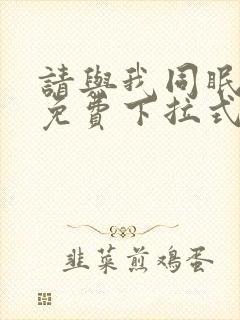 請與我同眠
免費下拉式
韭菜煎鸡蛋